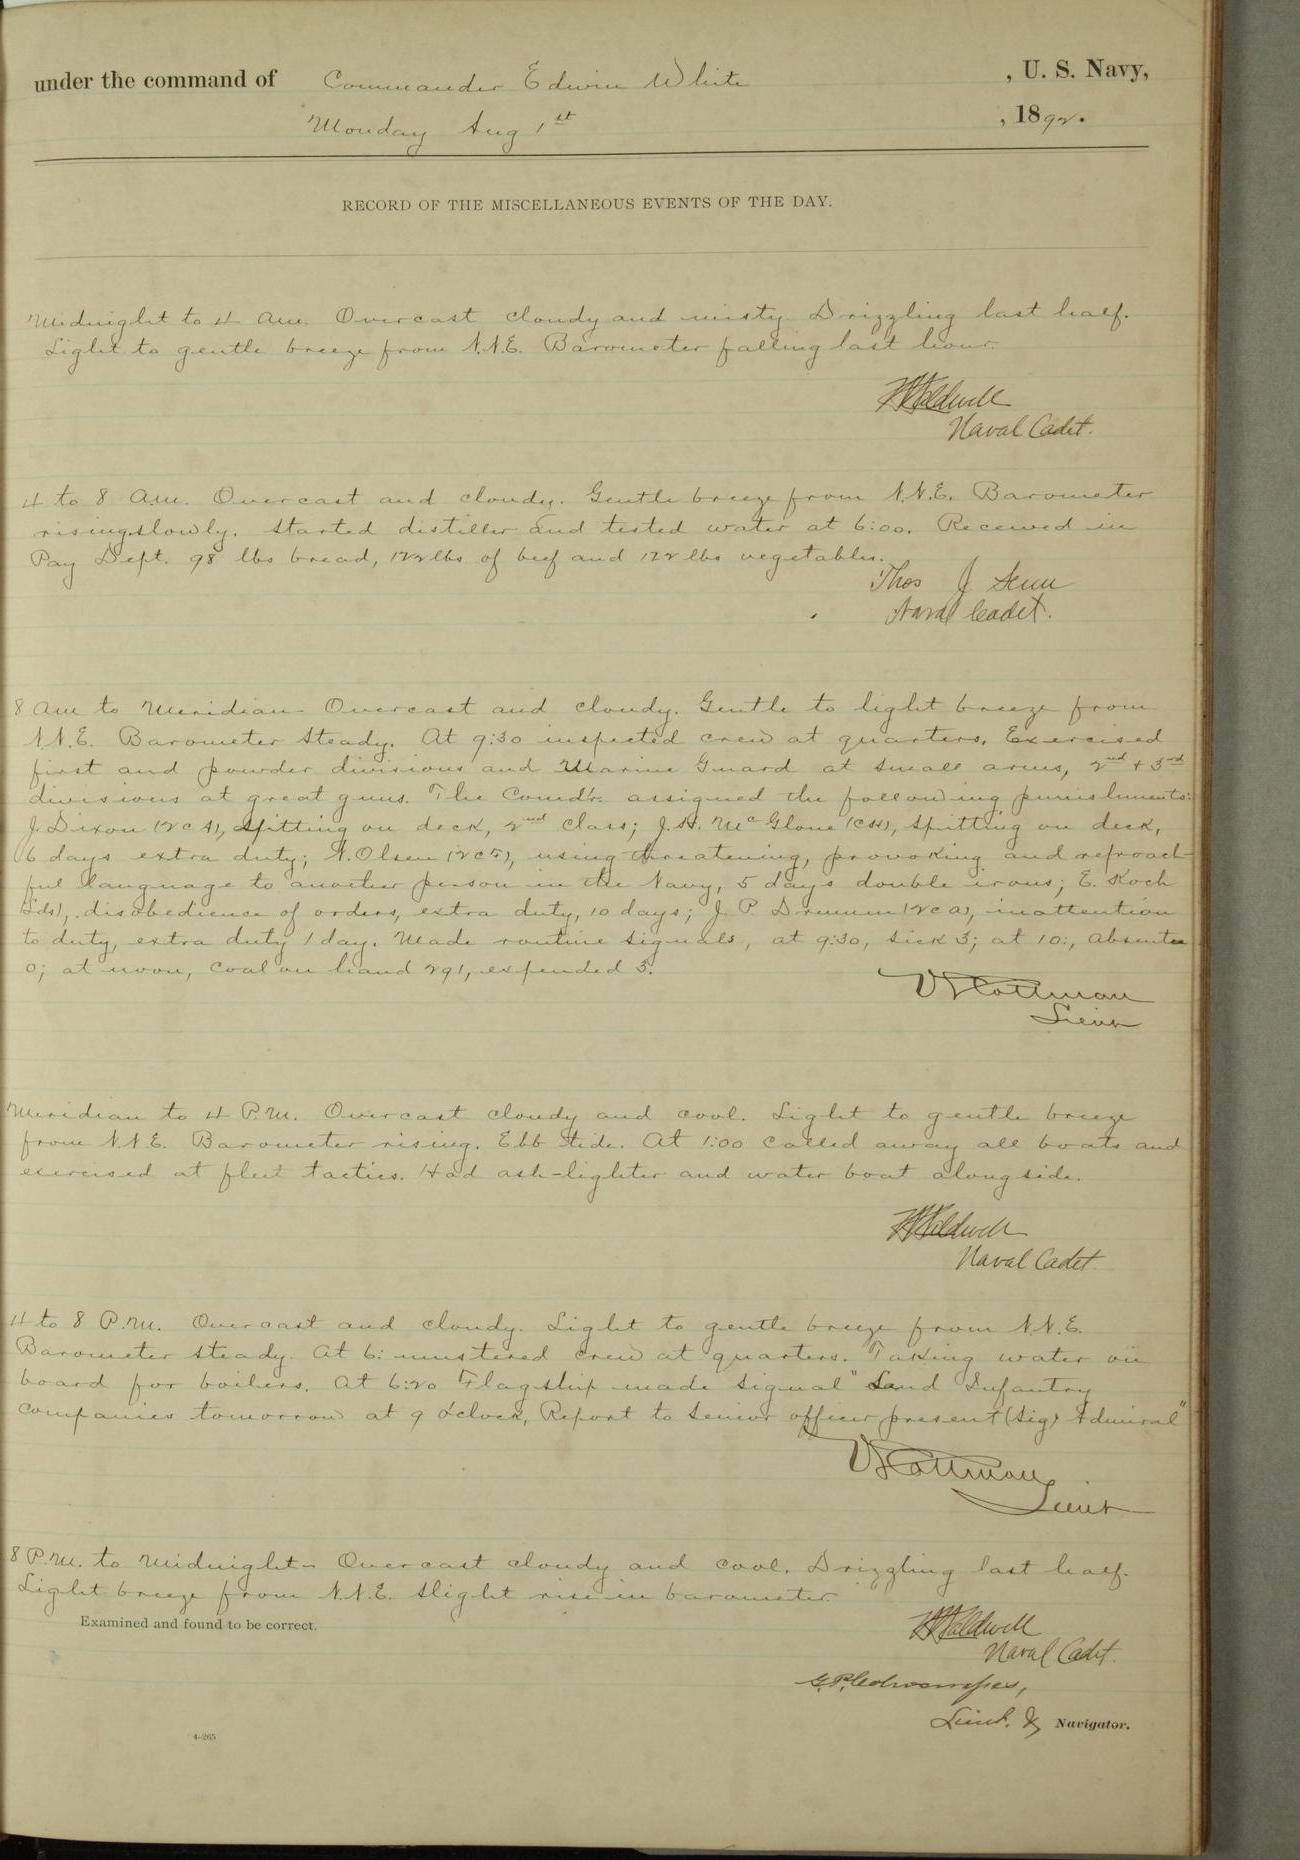 under the command of Commander Edwin White , U. S. Navy,
Monday Aug 1st , 1892.
RECORD OF THE MISCELLANEOUS EVENTS OF THE DAY.
Midnight to 4 am. Overcast cloudy and misty. Drizzling last half.
Light to gentle breeze from N.N.E. Barometer falling last hour.
Naval Cadet.
4 to 8 a.m. Overcast and cloudy. Gentle breeze from N.N.E. Barometer
rising slowly. Started distiller and tested water at 6:00. Received in
Pay Dept. 98 lbs bread, 122 lbs of beef and 122 lbs vegetables.
Thos J Senn
Naval Cadet.
8 am to Meridian - Overcast and cloudy. Gentle to light breeze from
N.N.E. Barometer Steady. At 9:30 inspected crew at quarters. Exercised
first and powder divisions and Marine Guard at small arms, 2nd + 3rd
divisions at great guns. The Comd'r. assigned the following punishments:
J. Dixon (2c A), spitting on deck, 2nd class; J.H. McGlone (CH), spitting on deck,
6 days extra duty; N. Olsen (2c F), using threatening, provoking and reproach-
ful language to another person in the Navy, 5 days double irons; E. Koch
(Lds), disobedience of orders, extra duty, 10 days; J. P. Drumm (2c a), inattention
to duty, extra duty 1 day. Made routine signals, at 9:30, sick 3; at 10:, absentee
0; at noon, coal on hand 291, expended 3.
V S Cottman
Lieut
Meridian to 4 P.M. Overcast cloudy and cool. Light to gentle breeze
from N.N.E. Barometer rising. Ebb tide. At 1:00 called away all boats and
exercised at fleet tactics. Had ash-lighter and water boat alongside.
Naval Cadet.
4 to 8 P.M. Overcast and cloudy. Light to gentle breeze from N.N.E.
Barometer steady. At 6: mustered crew at quarters. Taking water on
board for boilers. At 6:20 Flagship made signal "Land Infantry
companies tomorrow at 9 o'clock, Report to Senior officer present (Sig) Admiral"
V S Cottman
Lieut
8 P.M. to Midnight - Overcast cloudy and cool. Drizzling last half.
Light breeze from N.N.E. Slight rise in barometer.
Examined and found to be correct.
Naval Cadet.
Lieut. & Navigator.
4-265